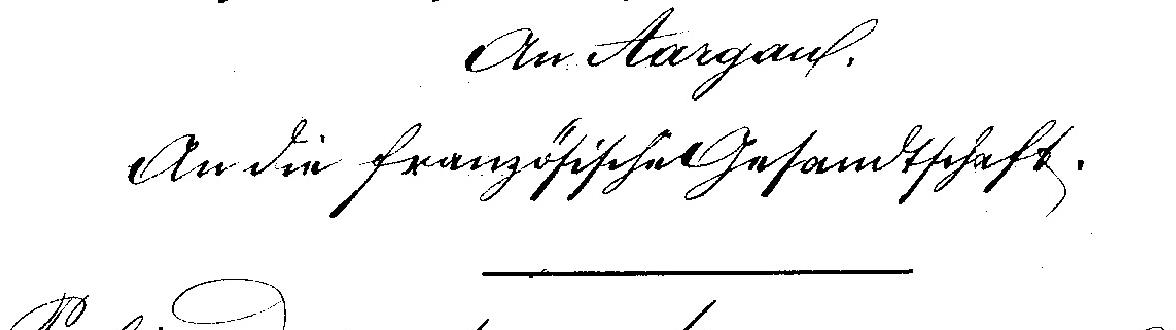 An Aargau.
An die französische Gesandtschaft.